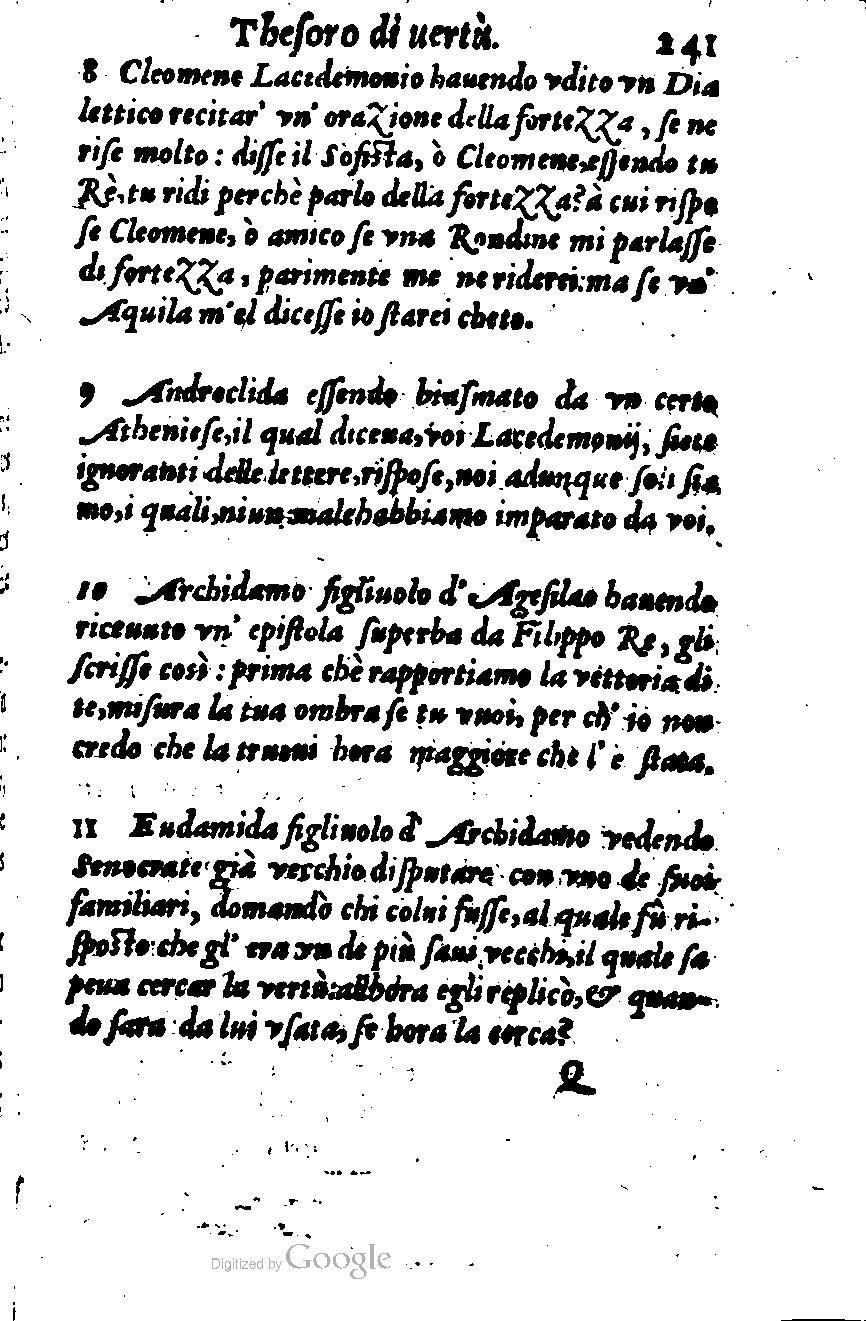 Theſoro di uertù. 241
8 Cleomene Lacedemonio hauendo vdito vn Dia
lettico recitar' vn' orazione della fortezza, ſe ne
riſe molto: diſſe il Sofista, ò Cleomene, eſſendo tu
Rè, tu ridi perchè parlo della fortezza? à cui riſpo
ſe Cleomene, ò amico ſe vna Rondine mi parlaſſe
di fortezza, parimente me ne riderei: ma ſe vn'
Aquila m'el diceſſe io ſtarei cheto.
9 Androclida eſſendo biaſmato da vn certo
Athenieſe, il qual diceua, voi Lacedemonij, ſiete
ignoranti delle lettere, riſpoſe, noi adunque ſoli ſia
mo, i quali, niun male habbiamo imparato da voi.
10 Archidamo figliuolo d' Ageſilao hauendo
riceuuto vn' epiſtola ſuperba da Filippo Re, gli
ſcriſſe così: prima chè rapportiamo la vittoria di
te, miſura la tua ombra ſe tu vuoi, per ch' io non
credo che la truoui hora maggiore che l' è ſtata.
11 Eudamida figliuolo d' Archidamo vedendo
Senocrate già vecchio diſputare con vno de ſuoi
familiari, domandò chi colui fuſſe, al quale fù ri-
ſposto che gl' era vn de più ſaui vecchi, il quale ſa
peua cercar la vertù: allhora egli replicò, & quan-
do ſara da lui vſata, ſe hora la cerca?
Q
Digitized by Google